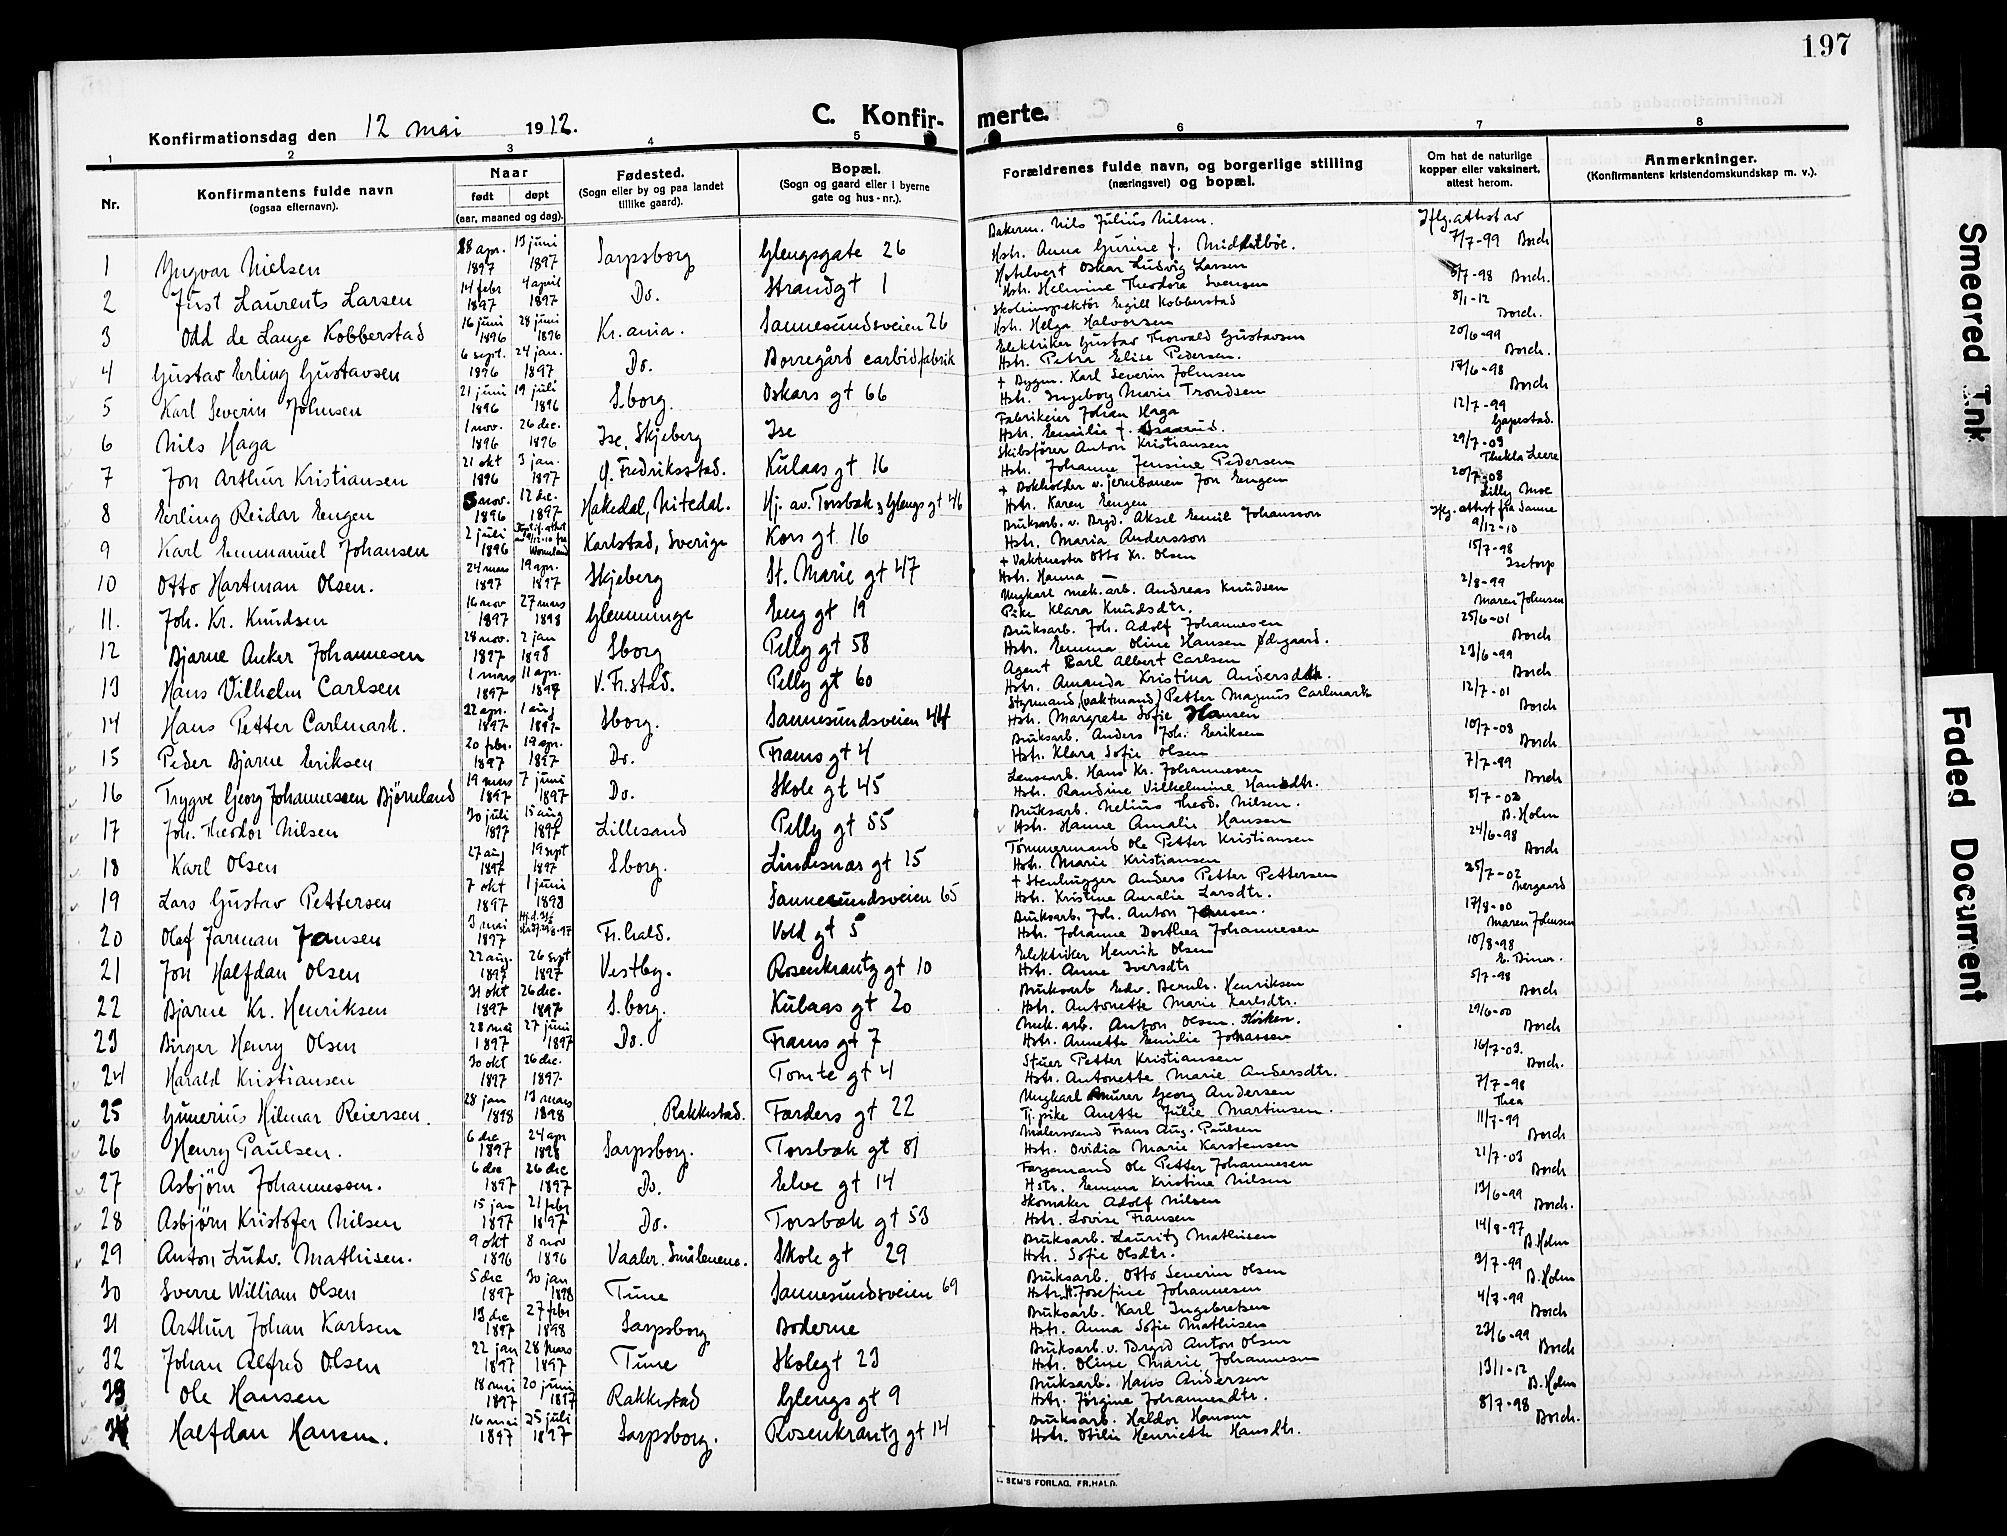 197
C. Konfirmerte.
Konfirmationsdag den 12 mai 1912.
1 2 3 4 5 6 7 8
Nr.
Konfirmantens fulde navn
(ogsaa efternavn).
Naar
født døpt
(aar, maaned og dag).
Fødested.
(Sogn eller by og paa landet
tillike gaard).
Bopæl.
(Sogn og gaard eller i byerne
gate og hus-nr.).
Forældrenes fulde navn, og borgerlige stilling
(næringsvei) og bopæl.
Om hat de naturlige
kopper eller vaksinert,
attest herom.
Anmerkninger.
(Konfirmantens kristendomskundskap m. v.).
1 Yngvar Nielsen 28 apr. 1897 13 juni 1897 Sarpsborg Glengsgate 26 Bakerm. Nils Julius Nilsen. Iflg. attest av
Hstr. Anna Gurine f. Midtbøe. 7/7-99 Borch
2 Just Laurents Larsen 14 febr 1897 4 april 1897 Do. Strandgt 1 Hotelvert Oskar Ludvig Larsen
Hstr. Helmine Theodora Svensen 5/7-98 Borch.
3 Odd de Lange Kobberstad 16 juni 1896 28 juni 1896 Kr.ania. Sannesundsveien 26 Skoleinspektør Egill Kobberstad
Hstr. Helga Halvorsen 8/1-12 Borch.
4 Gustav Erling Gustavsen 6 sept. 1896 24 jan. 1897 Do. Borregård carbidfabrik Elektriker Gustav Thorvald Gustavsen
Hstr. Petra Elise Pedersen. 20/6-99 Borch.
5 Karl Severin Johnsen 21 juni 1896 19 juli 1896 S.borg. Oskars gt 66 + Bygm. Karl Severin Johnsen
Hstr. Ingeborg Marie Trondsen 17/6-98 Borch
6 Nils Haga 1 nov. 1896 26 dec. 1896 Ise, Skjeberg Ise Fabrikeier Johan Haga
Hstr. Emilie f. 12/7-99
7 Jon Arthur Kristiansen 21 okt 1896 3 jan. 1897 G. Fredriksstad. Kulaas gt 16 Skibsfører Anton Kristiansen
Hstr. Johanne Jensine Pedersen 29/7-03 Thekla Leere
8 Erling Reidar Engen 5 nov. 1896 12 dec. 1897 Hakedal, Nitedal. Hj. av. Torsbæk & Glengs gt 46 + Bokholder v. jernbanen Jon Engen
Hstr. Karen Engen 20/7-08 Lilly Moe
9 Karl Emmanuel Johansen 2 juli 1896 Karlstad, Sverige Kors gt 16 Bruksarb. v. Brgd. Aksel Emil Johansson
Hstr. Maria Andersson Iflg. attest fra Sanne 9/12-10
10 Otto Hartman Olsen. 24 mars 1897 19 apr. 1897 Skjeberg St. Marie gt 47 + Vaktmester Otto Kr. Olsen
Hstr. Hanna — 15/7-98 Isetorp
11. Joh. Kr. Knudsen 16 nov 1897 27 mars 1898 Glemminge Eng gt 19 Ungkarl mek. arb. Andreas Knudsen
Pike Klara Knudsdtr. 2/8-99 Maren Johnsen
12 Bjarne Anker Johannesen 28 nov. 1897 2 jan 1898 Sborg Pelly gt 58 Bruksarb. Joh. Adolf Johannesen
Hstr. Emma Oline Hansen Ødegaard. 25/6-01 Borch
13 Hans Vilhelm Carlsen 1 mars 1897 11 apr. 1897 V. Fr.stad. Pelly gt 60 Agent Carl Albert Carlsen
Hstr. Amanda Kristina Andersdtr. 23/6-99 Borch
14 Hans Petter Carlmark. 22 apr. 1897 1 aug 1897 Sborg. Sannesundsveien 44 Styrmand, (vaktmand) Petter Magnus Carlmark
Hstr. Margrete Sofie Hansen 12/7-01 Borch
15 Peder Bjarne Eriksen 20 febr. 1897 19 apr. 1897 Do. Frams gt 4 Bruksarb. Anders Joh. Eriksen
Hstr. Klara Sofie Olsen 10/7-08 Borch
16 Trygve Georg Johannessen Bjørneland 19 mars 1897 7 juni 1897 Do. Skole gt 45 Lensearb. Hans Kr. Johannesen
Hstr. Randine Vilhelmine Hansdtr. 7/7-99 Borch
17 Joh. Theodor Nilsen 30 juli 1897 15 aug 1897 Lillesand Pelly gt 55 Bruksarb. Nelius Theod. Nilsen.
Hstr. Hanne Amalie Hansen 5/7-02 B. Holm
18 Karl Olsen 27 aug 1897 19 sept 1897 Sborg. Lindesnæs gt 15 Tømmermand Ole Petter Kristiansen
Hstr. Marie Kristiansen 24/6-98 Borch
19 Lars Gustav Pettersen 7 okt 1897 1 juni 1898 Sannesundsveien 65 + Stenhugger Anders Petter Pettersen
Hstr. Kristine Amalie Larsdtr. 25/7-02 Nergaard
20 Olaf Jarman Jansen 3 mai 1897 Fr.hald. Vold gt 5 Bruksarb. Joh. Anton Jansen.
Hstr. Johanne Dorthea Johannesen 17/8-00 Maren Johnsen
21 Jon Halfdan Olsen 22 aug. 1897 26 sept 1897 Vestby. Rosenkrantz gt 10 Elektriker Henrik Olsen
Hstr. Anne Iversdtr 10/8-98
22 Bjarne Kr. Henriksen 31 okt 1897 26 dec. 1897 S.borg. Kulaas gt 20 Bruksarb Edv. Bernh. Henriksen
Hstr. Antonette Marie Karlsdtr. 5/7-98 Borch
23 Birger Henry Olsen 28 mai 1897 27 juni 1897 Do. Frams gt 7 Mek. arb. Anton Olsen
Hstr. Annette Emilie Johansen 29/6-00 Borch
24 Harald Kristiansen 30 okt 1897 26 dec. 1897 Tomte gt 4 Stuer Petter Kristiansen
Hstr. Antonette Marie Andersdtr. 16/7-03. Borch.
25 Gunerius Hilmar Reiersen. 28 jan 1898 13 mars 1898 Rakkestad. Færders gt 22 Ungkarl Murer Georg Andersen
Tj. pike Anette Julie Martinsen. 7/7-98 Thea
26 Henry Paulsen. 6 dec 1897 24 apr 1898 Sarpsborg. Torsbæk gt 81 Malersvend Frans Aug. Paulsen
Hstr. Ovidia Marie Karstensen 11/7-99 Borch
27 Asbjørn Johannessen. 6 dec 1897 26 dec 1897 Do. Elve gt 14 Færgemand Ole Petter Johannesen
Hstr. Emma Kristine Nilsen 21/7-03 Borch
28 Asbjørn Kristofer Nilsen 15 jan 1897 21 febr 1897 Do. Torsbæk gt 53 Skomaker Adolf Nilsen
Hstr. Lovise Fransen 13/6-99 Borch.
29 Anton Ludv. Mathisen. 9 okt 1896 8 nov 1896 Vaaler. Smaalenene. Skole gt 29 Bruksarb. Lauritz Mathisen
Hstr. Sofie Olsdtr. 14/8-97 B. Holm
30 Sverre William Olsen 5 dec 1897 30 jan 1898 Tune Sannesundsveien 69 Bruksarb. Otto Severin Olsen
Hstr. H. Josefine Johannesen 3/7-99 B. Holm
31 Arthur Johan Karlsen 13 dec 1897 27 febr 1898 Sarpsborg Boderne Bruksarb. Karl Ingebretsen
Hstr. Anna Sofie Mathisen 4/7-99 Borch
32 Johan Alfred Olsen 22 jan 1897 28 mars 1897 Tune Skolegt 23 Bruksarb. v. Brgrd Anton Olsen
Hstr. Oline Marie Johannesen 23/6-99 Borch
33 Ole Hansen 18 mai 1897 20 juni 1897 Rakkestad Glengs gt 9 Bruksarb. Hans Andersen
Hstr. Jörgine Johannesdtr. 13/1-12 B. Holm
34 Halfdan Hansen. 16 mai 1897 25 juli 1897 Sarpsborg. Rosenkrantz gt 14 Bruksarb. Haldor Hansen
Hstr. Otilie Henriette Hansdtr. 8/7-98 Borch.
SEM'S FORLAG, FR.HALD.
Smeared Ink
Faded Document